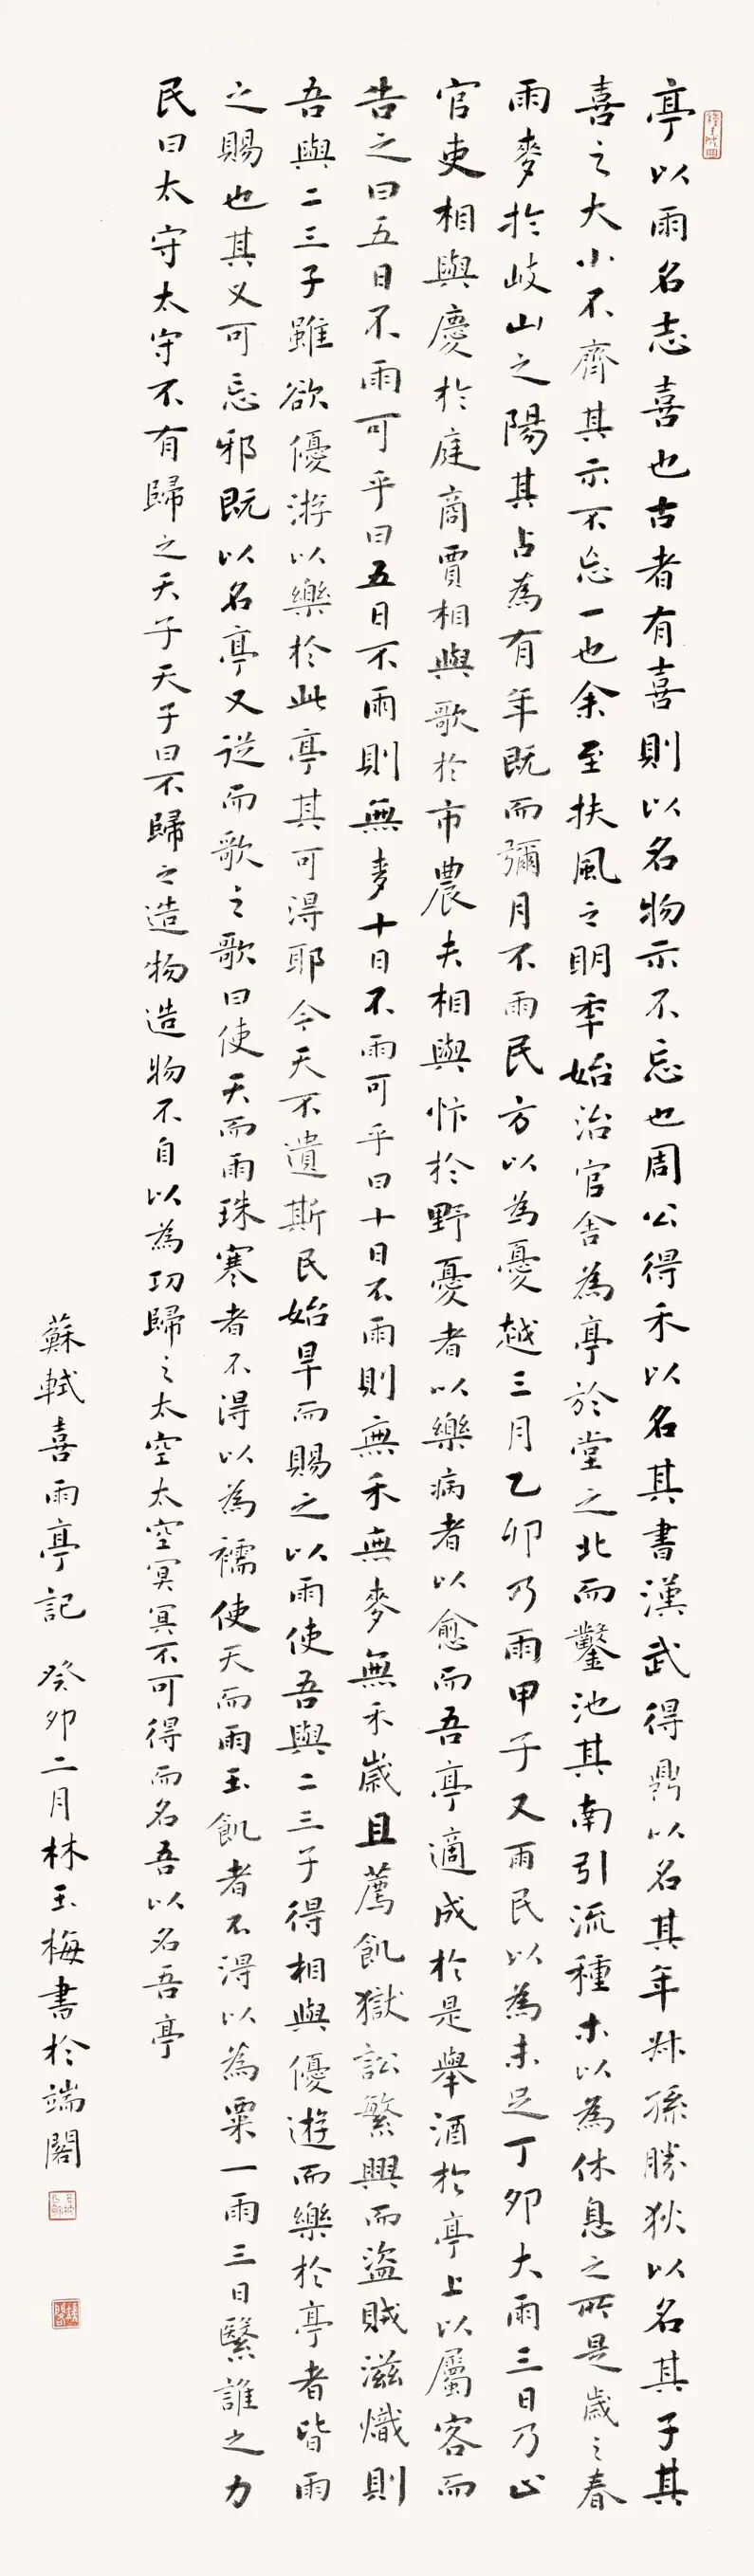 亭以雨名志喜也古者有喜則以名物示不忘也周公得禾以名其書漢武得鼎以名其年叔孫勝狄以名其子其
喜之大小不齊其示不忘一也余至扶風之明季始治官舍為亭於堂之北而鑿池其南引流種木以為休息之所是歲之春
雨麥於岐山之陽其占為有年既而彌月不雨民方以為憂越三月乙卯乃雨甲子又雨民以為未足丁卯大雨三日乃止
官吏相與慶於庭商賈相與歌於市農夫相與忭於野憂者以樂病者以愈而吾亭適成於是舉酒於亭上以屬客而
告之曰五日不雨可乎曰五日不雨則無麥十日不雨可乎曰十日不雨則無禾無麥無禾歲且薦飢獄訟繁興而盜賊滋熾則
吾與二三子雖欲優游以樂於此亭其可得耶今天不遺斯民始旱而賜之以雨使吾與二三子得相與優遊而樂於亭者皆雨
之賜也其又可忘邪既以名亭又從而歌之歌曰使天而雨珠寒者不得以為襦使天而雨玉飢者不得以為粟一雨三日繄誰之力
民曰太守太守不有歸之天子天子曰不歸之造物造物不自以為功歸之太空太空冥冥不可得而名吾以名吾亭
蘇軾喜雨亭記 癸卯二月林玉梅書於端閣